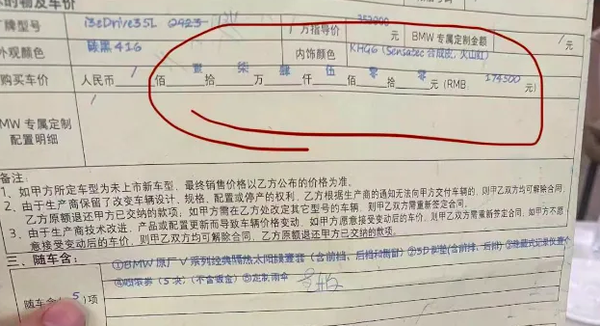 的物及车价
牌型号 i3eDrive35L 厂方指导价 353900 元 BMW 专属定制金额 /
外观颜色 碳黑416 内饰颜色 KHG6 (Sensatec 合成皮, 火山红)
购买车价 人民币 / 佰 壹 拾 柒 万 肆 仟 伍 佰 零 拾 零 元 (RMB 174500 元)
BMW 专属定制 /
配置明细
备注:
1、如甲方所定车型为未上市新车型,最终销售价格以乙方公布的价格为准。
2、由于生产商保留了改变车辆设计、规格、配置或停产的权利,乙方根据生产商的通知无法向甲方交付车辆的,则甲乙双方均可解除合同,
乙方原额退还甲方已交纳的款项,如甲方需在乙方处改定其它型号的车辆,则甲乙双方需重新签定合同。
3、由于生产商技术改进、产品或配置更新而导致车辆价格变动,如甲方愿意接受变动后的车价,则甲乙双方需重新签定合同,如甲方不愿
意接受变动后的车价,则甲乙双方可解除合同,乙方原额退还甲方已交纳的款项。
三、随车含:
①BMW 原厂 V 系列经典隔热太阳膜
随车含( 5 )项 (5 块) (不含钣金) ⑤定制雨伞